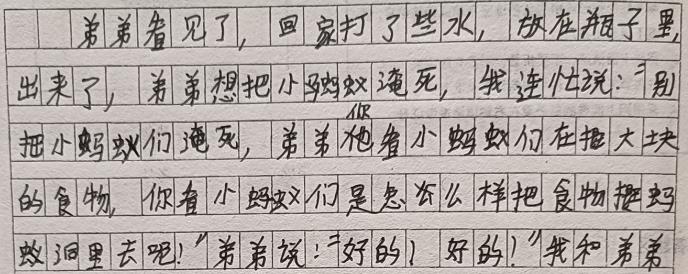 弟弟看见了，回家打了些水，放在瓶子里，
出来了，弟弟想把小蚂蚁淹死，我连忙说："别
把小蚂蚁们淹死，弟弟你看小蚂蚁们在搬大块
的食物，你看小蚂蚁们是怎么样把食物搬蚂
蚁洞里去吧！"弟弟说："好的！好的！"我和弟弟